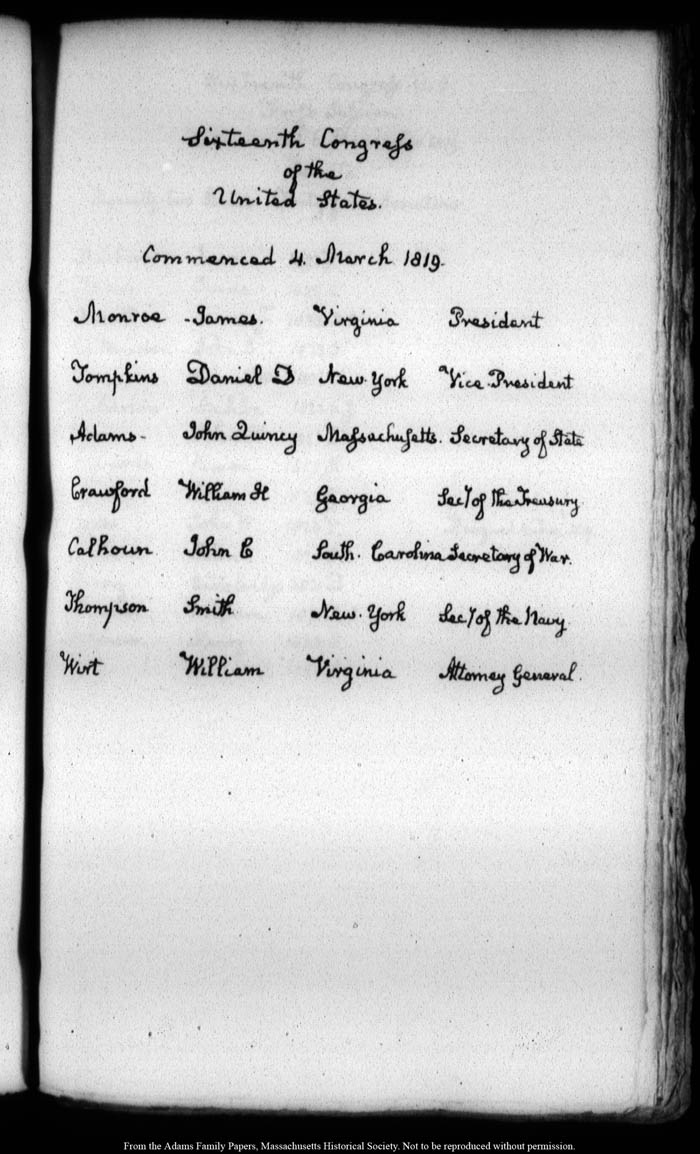 Sixteenth Congress
of the
United States.
Commenced 4. March 1819.
Monroe - James. Virginia President
Tompkins Daniel D New-York Vice-President
Adams- John Quincy Massachusetts. Secretary of State
Crawford William H Georgia Secy of the Treasury.
Calhoun John C South. Carolina Secretary of War.
Thompson Smith New-York Secy of the Navy.
Wirt William Virginia Attorney General.
From the Adams Family Papers, Massachusetts Historical Society. Not to be reproduced without permission.